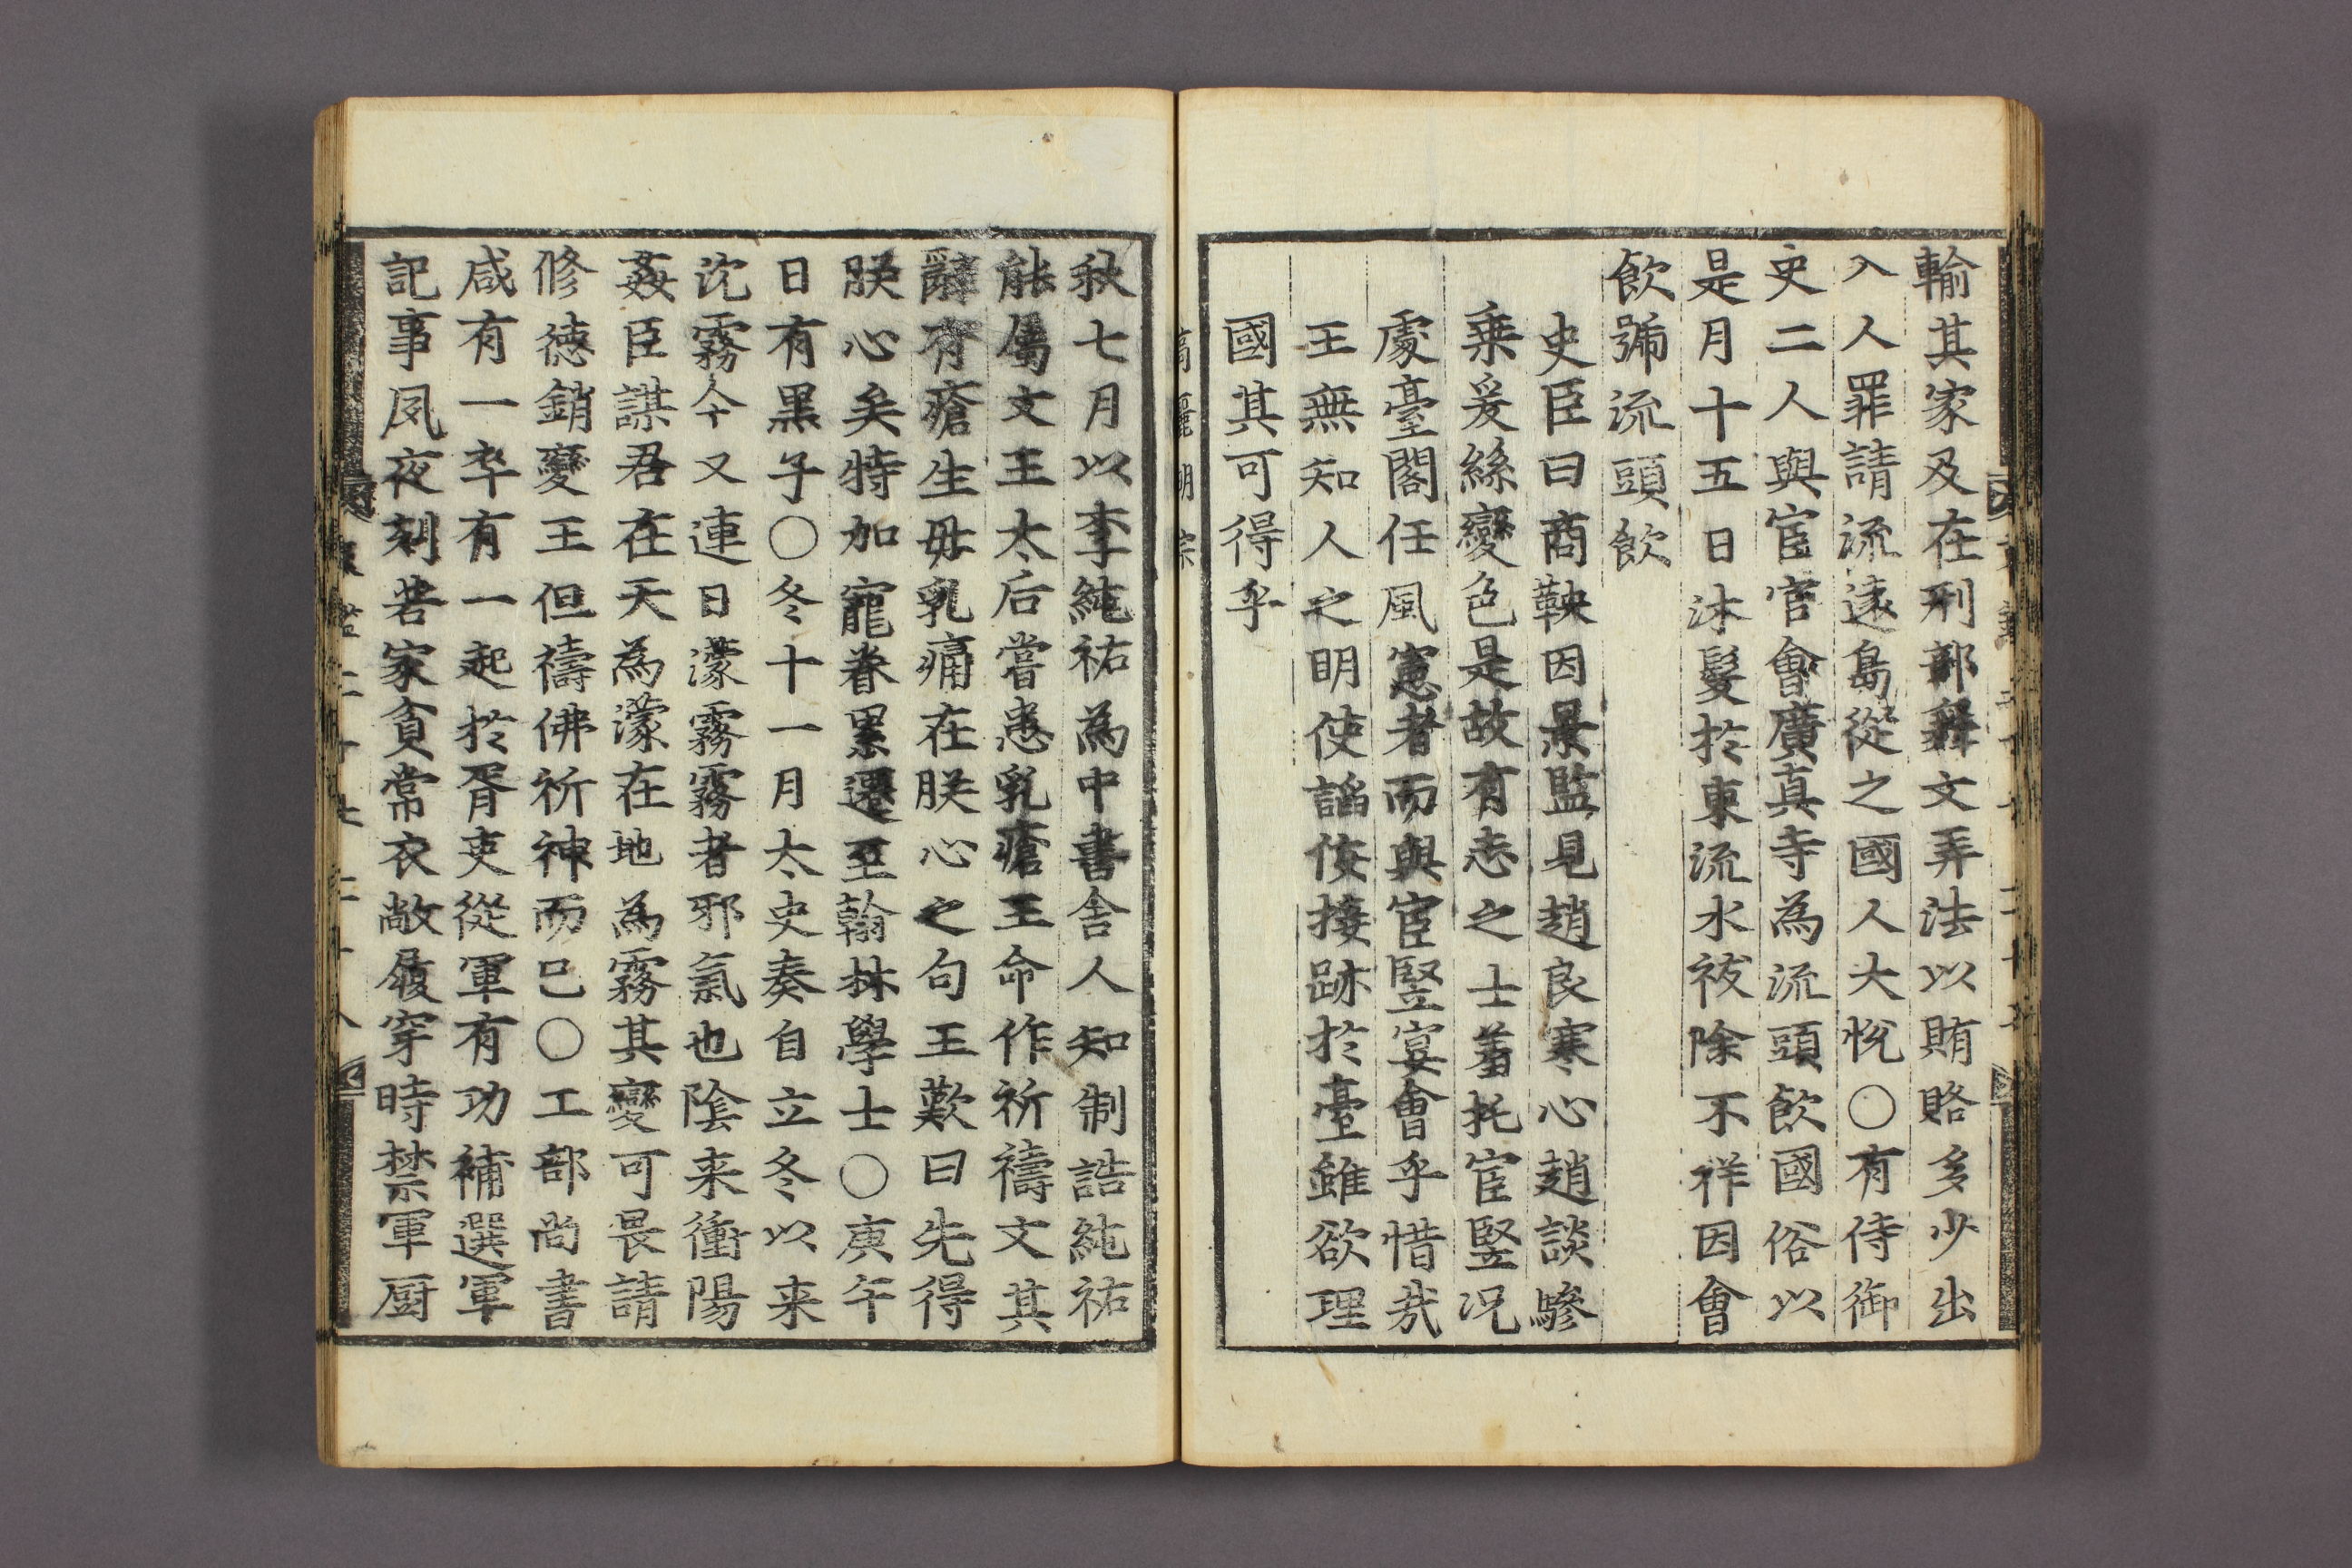 輸其家及在刑部舞文弄法以賄賂多少出
入人罪請流遠島從之國人大悅○有侍御
史二人與宦官會廣真寺為流頭飮國俗以
是月十五日沐髮於東流水祓除不祥因會
飮號流頭飮
史臣曰商鞅因景監見趙良寒心趙談驂
乗爰絲變色是故有志之士羞托宦竪况
處臺閣任風憲者而與宦竪宴會乎惜哉
王無知人之明使謟侫接跡於臺雖欲理
國其可得乎
高麗明宗
秋七月以李純祐為中書舍人知制誥純祐
能屬文王太后嘗患乳瘡王命作祈禱文其
辭有瘡生母乳痛在朕心之句王歎曰先得
朕心矣特加寵眷累遷至翰林學士○庚午
日有黒子○冬十一月太史奏自立冬以来
沈霧今又連日濛霧霧者邪氣也陰来衝陽
姦臣謀君在天為濛在地為霧其變可畏請
修德銷變王但禱佛祈神而已○工部尚書
咸有一卒有一起於胥吏從軍有功補選軍
記事夙夜刻苦家貪常衣敝履穿時禁軍厨